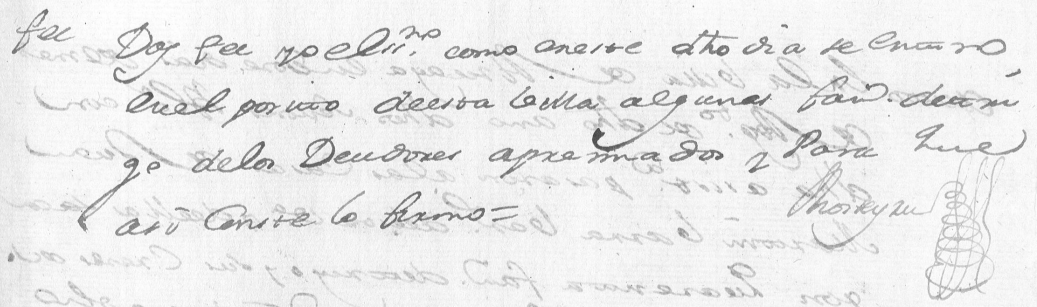 fee Doy fee yo el ss.no como en este dho dia se entraro
en el posito de esta villa algunas fan.s de tri
go de los Deudores apremiados y Para que
asi Conste lo firmo =